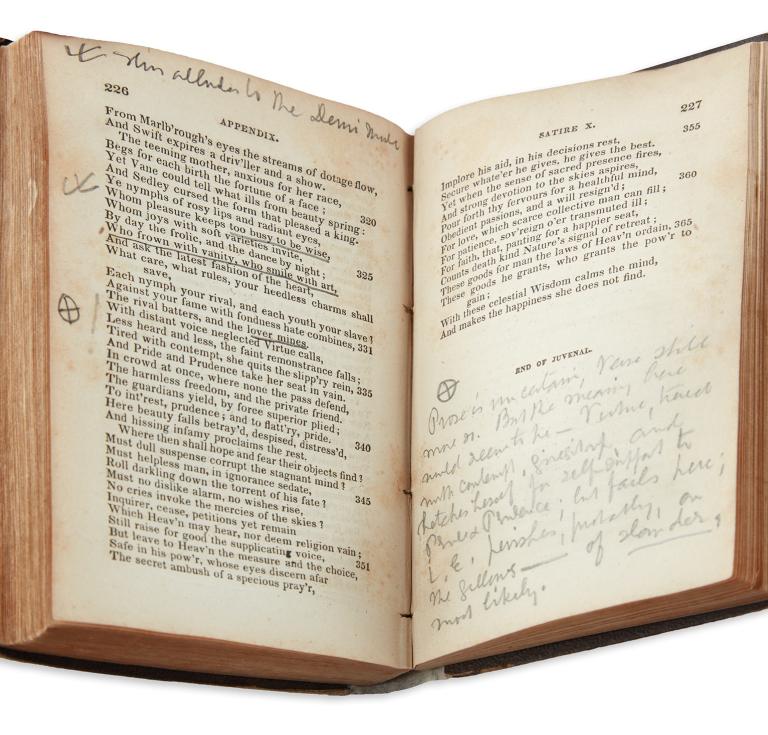 This alludes to the Demi Monde
226
APPENDIX.
From Marlb'rough's eyes the streams of dotage flow,
And Swift expires a driv'ller and a show.
The teeming mother, anxious for her race,
Begs for each birth the fortune of a face; 320
Yet Vane could tell what ills from beauty spring:
And Sedley cursed the form that pleased a king.
Ye nymphs of rosy lips and radiant eyes,
Whom pleasure keeps too busy to be wise,
Whom joys with soft varieties invite, 325
By day the frolic, and the dance by night;
Who frown with vanity, who smile with art,
And ask the latest fashion of the heart,
What care, what rules, your heedless charms shall
save,
Each nymph your rival, and each youth your slave?
Against your fame with fondness hate combines, 331
The rival batters, and the lover mines.
With distant voice neglected Virtue calls,
Less heard and less, the faint remonstrance falls;
Tired with contempt, she quits the slipp'ry rein, 335
And Pride and Prudence take her seat in vain.
In crowd at once, where none the pass defend,
The harmless freedom, and the private friend.
The guardians yield, by force superior plied;
To int'rest, prudence; and to flatt'ry, pride. 340
Here beauty falls betray'd, despised, distress'd,
And hissing infamy proclaims the rest.
Where then shall hope and fear their objects find?
Must dull suspense corrupt the stagnant mind?
Must helpless man, in ignorance sedate, 345
Roll darkling down the torrent of his fate?
Must no dislike alarm, no wishes rise,
No cries invoke the mercies of the skies?
Inquirer, cease, petitions yet remain
Which Heav'n may hear, nor deem religion vain;
Still raise for good the supplicating voice, 351
But leave to Heav'n the measure and the choice,
Safe in his pow'r, whose eyes discern afar
The secret ambush of a specious pray'r,
SATIRE X.
227
Implore his aid, in his decisions rest, 355
Secure whate'er he gives, he gives the best.
Yet when the sense of sacred presence fires,
And strong devotion to the skies aspires,
Pour forth thy fervours for a healthful mind,
Obedient passions, and a will resign'd; 360
For love, which scarce collective man can fill;
For patience, sov'reign o'er transmuted ill;
For faith, that, panting for a happier seat,
Counts death kind Nature's signal of retreat;
These goods for man the laws of Heav'n ordain, 365
These goods he grants, who grants the pow'r to
gain;
With these celestial Wisdom calms the mind,
And makes the happiness she does not find.
END OF JUVENAL.
Prose is uncertain, Verse still
more so. But the meaning here
would seem to be — Virtue, treated
with contempt, and
betakes herself for self-support to
Pride & Prudence; but fails here;
i.e. perishes, probably, on
the gallows — of slander,
most likely.